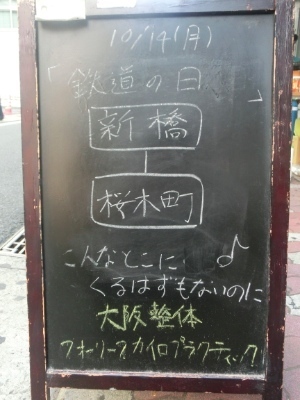 10/14(月)
「鉄道の日」
新橋
桜木町
こんなとこに
くるはずもないのに
大阪整体
フォーリーフカイロプラクティック